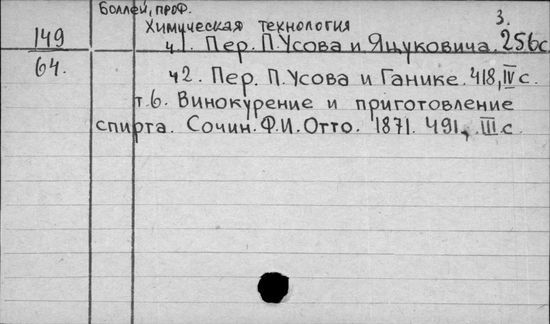 Боллей, проф.
3.
Химическая технология
149
64.
ч1. Пер. П. Усова и Яцуковича. 256 с
ч2. Пер. П. Усова и Ганике. 418, IV с.
т. 6. Винокурение и приготовление
спирта. Сочин. Ф. И. Отто. 1871. 491, III с.